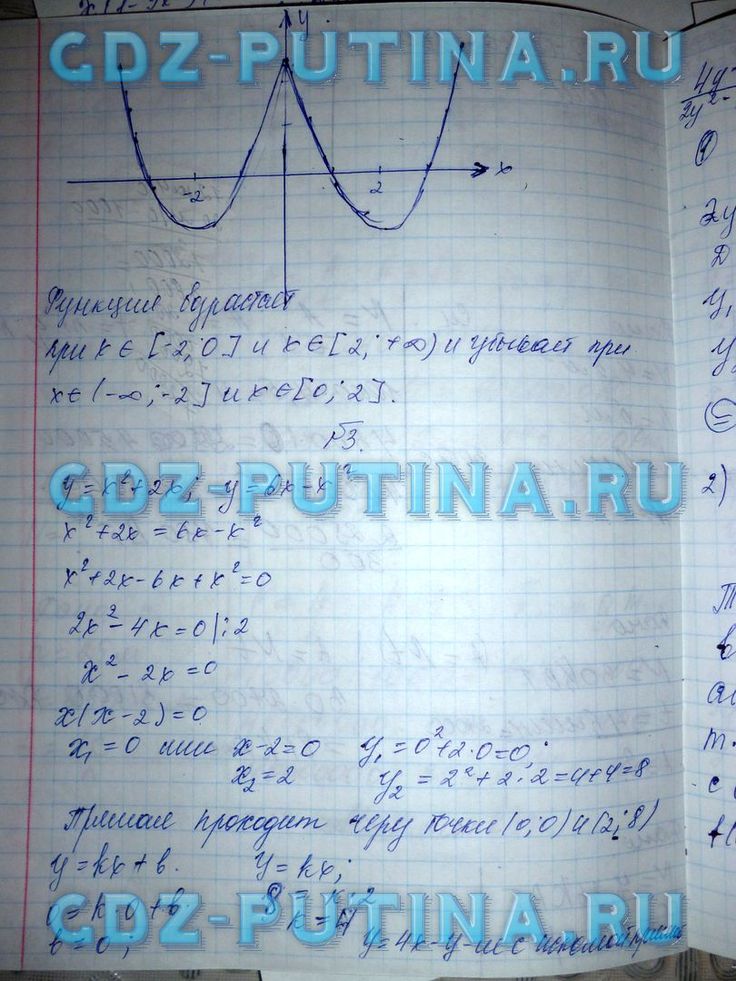 y
GDZ-PUTINA.RU
x
-2
2
Функция возрастает
при x ∈ [-2; 0] и x ∈ [2; +∞) и убывает при
x ∈ (-∞; -2] и x ∈ [0; 2].
№3.
GDZ-PUTINA.RU
y = x² + 2x; y = 6x - x²
x² + 2x = 6x - x²
x² + 2x - 6x + x² = 0
2x² - 4x = 0 |:2
x² - 2x = 0
x(x - 2) = 0
x₁ = 0 или x - 2 = 0 y₁ = 0² + 2·0 = 0;
x₂ = 2 y₂ = 2² + 2·2 = 4+4 = 8
Прямая проходит через точки (0; 0) и (2; 8)
y = kx + b. y = kx;
GDZ-PUTINA.RU
0 = k·0 + b 8 = k·2
b = 0; k = 4
y = 4x - у-ие искомой прямой
4y
2y² -
2y
Д
y₁
y₂
2)
Т
в
т.
с